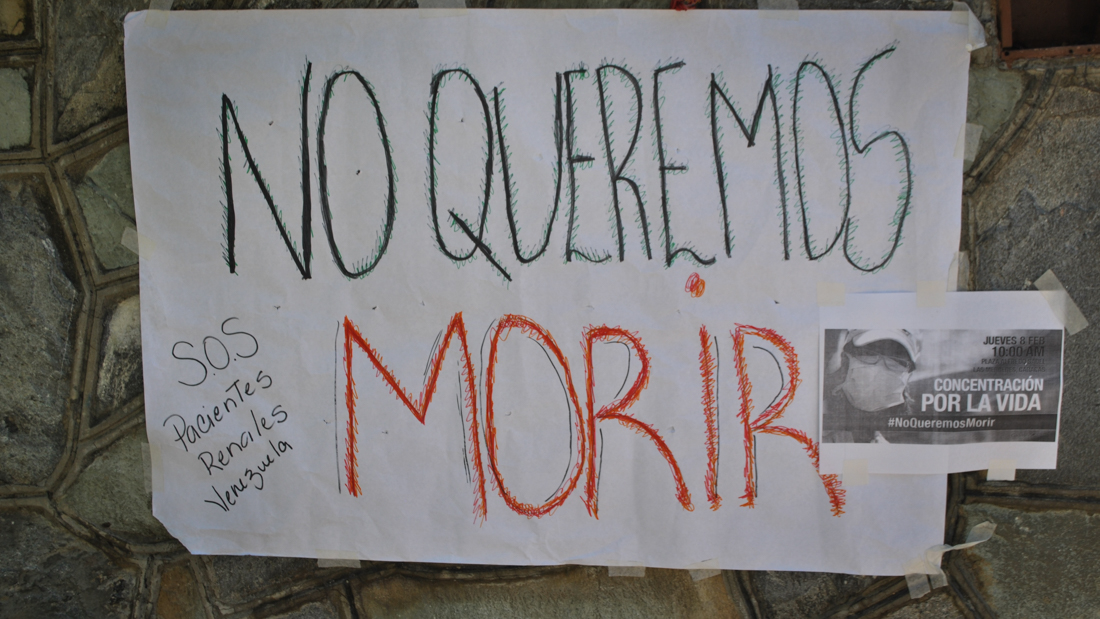 NO QUEREMOS
MORIR
SOS
Pacientes
Renales
Venezuela
JUEVES 8 FEB
10:00 AM
CONCENTRACIÓN
POR LA VIDA
#NoQueremosMorir